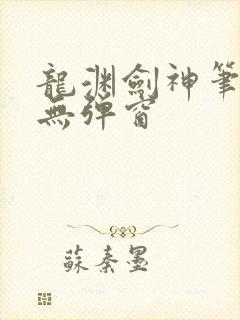 龍渊劍神筆
無彈窗
蘇秦墨